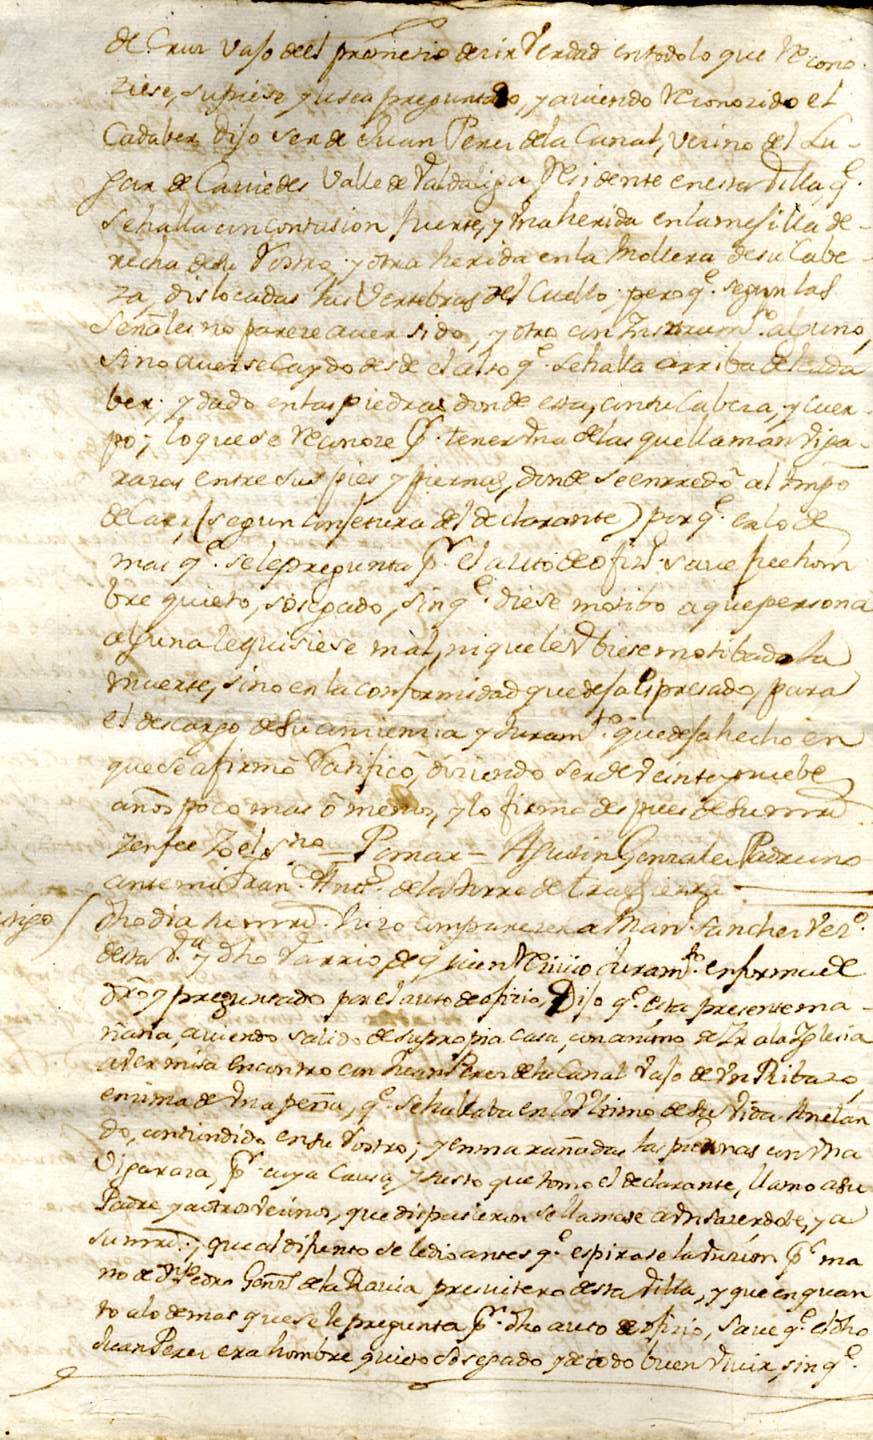 de Cruz vajo deel promesio decir Verdad entodolo que Recono-
ziese, supiese y lesea preguntado, y aviendo Reconozido el
Cadaber, dijo ser de Juan Perez dela Canal, vezino del Lu-
gar de Caviedes Valle de Valdaliga Residente en esta Villa, q.e
se halla con contusion fuerte, y una herida en la mejilla de-
recha de su Rostro, y otra herida en la Mollera de su Cabe-
za, dislocadas las Vertebras del Cuello; pero q.e segun las
señales no pareze aver sido, y otro con Instrum.to alguno,
sino averse caydo desde el alto q.e se halla arriba del cada
ber, y dado en las piedras donde esta, con su Cabeza, y cuer-
po; lo que se Reconoze p.r tener una delas que llaman viga-
razas entre sus pies y piernas, donde se enrredó al tmpo
de Caer, (segun conjetura del declarante) porq.e en lo de
mas q.e se le pregunta p.r el auto de ofizio save fue hom
bre quieto, sosegado, sin q.e diese motibo a que persona
alguna le quisiese mal, ni que le Ubiese motibado la
muerte, sino en la conformidad que deja espresado, para
el descargo de su conciencia y Juram.to que deja hecho en
que se afirmó Ratificó, diziendo ser de veinte y nuebe
años poco mas ó menos, y lo firmó despues de su mrd
y en fee Yo el ss.no = Pomar = Agustin Gonzalez Padruno
ante mi Fran.co Ant.o de la Torre de Trassierra
dho dia su mrd. hizo comparezer a Man.l Sanchez Vez.o
desta v.a y dho varrio de q.e quien Reciviò Juram.to en forma de
dro y preguntado por el auto de ofizio, Dijo q.e esta presente ma-
ñana, aviendo salido de su propia casa, con animo de Ir ala Yglesia
a ver misa encontro con Juan Perez de la Canal vajo de un Ribazo,
enzima de una peña, q.e se hallaba en lo Ultimo de su Vida Anelan
do, contundido en su Rostro; y enmarañadas las piernas con una
Vigaraza, p.r cuya Causa, y susto que tomo el declarante, llamo a su
Padre y a otros vecinos, que dispusieron se llamase a un sazerdote, y a
su mrd. y que al difunto se le dio antes q.e espirase la Unzion p.r ma
no de Dn Pedro Gonz.z de la Ravia presvitero desta Villa, y que en quan
to a lo demas que se le pregunta p.r dho auto de ofizio, save q.e el dho
Juan Perez era hombre quieto sosegado y de todo buen vivir, sin q.e